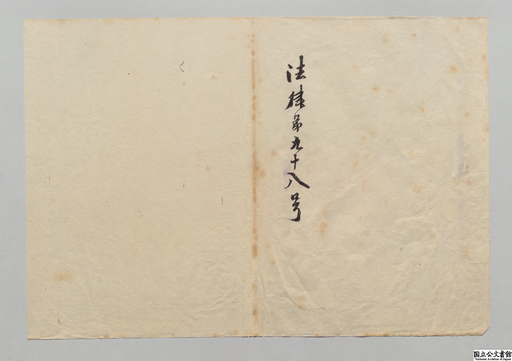 法律第九十八号
国立公文書館
National Archives of Japan